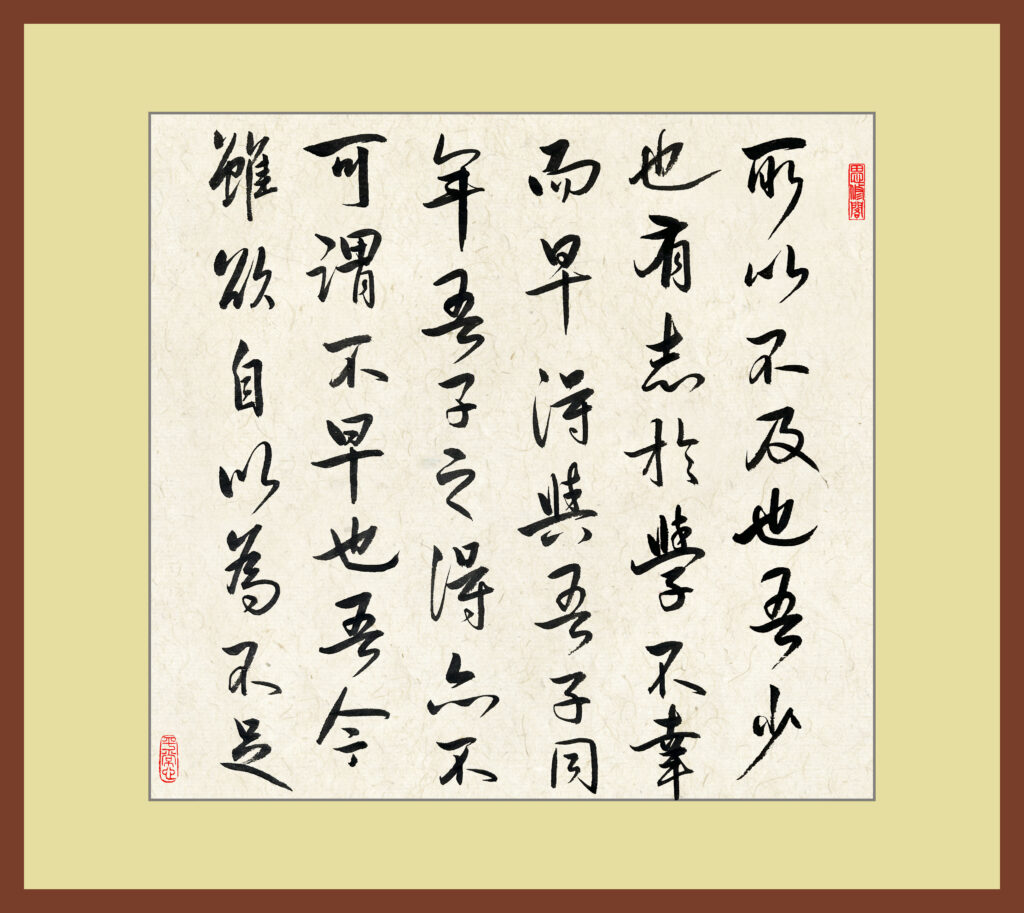 思修閣
所以不及也吾少
也有志於學不幸
而早得與吾子同
年吾子之得亦不
可謂不早也吾今
雖欲自以為不足
平常心